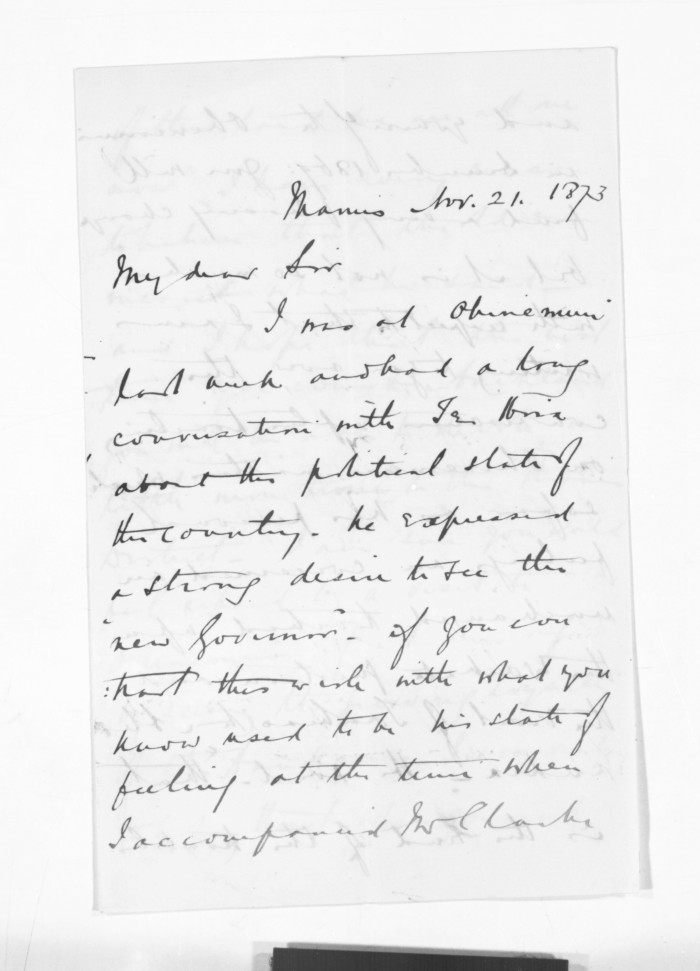 Nov. 21. 1873
My dear Sir
I was at Ohinemuri
last week and had a long
conversation with Te Hira
about the political state of
the country. he expressed
a strong desire to see the
"new Governor". if you con
:trast this wish with what you
know used to be his state of
feeling at the time when
I accompanied Mr Clarke